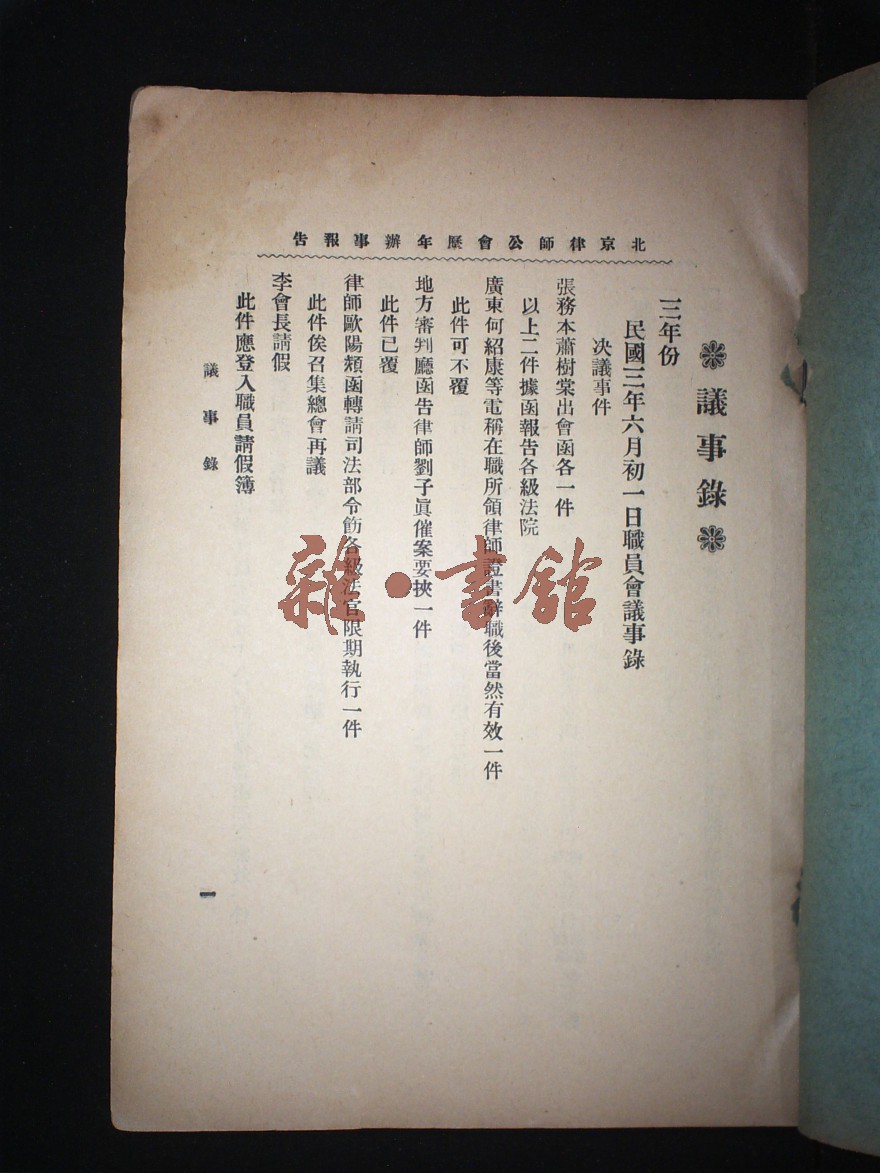 北京律師公會歷年辦事報告
❋議事錄❋
三年份
民國三年六月初一日職員會議事錄
决議事件
張務本蕭樹棠出會函各一件
以上二件據函報告各級法院
廣東何紹康等電稱在職所領律師證書辭職後當然有效一件
此件可不覆
地方審判廳函告律師劉子眞催案要挾一件
此件已覆
律師歐陽頮函轉請司法部令飭各級法官限期執行一件
此件俟召集總會再議
李會長請假
此件應登入職員請假簿
議事錄
一
雜·書館